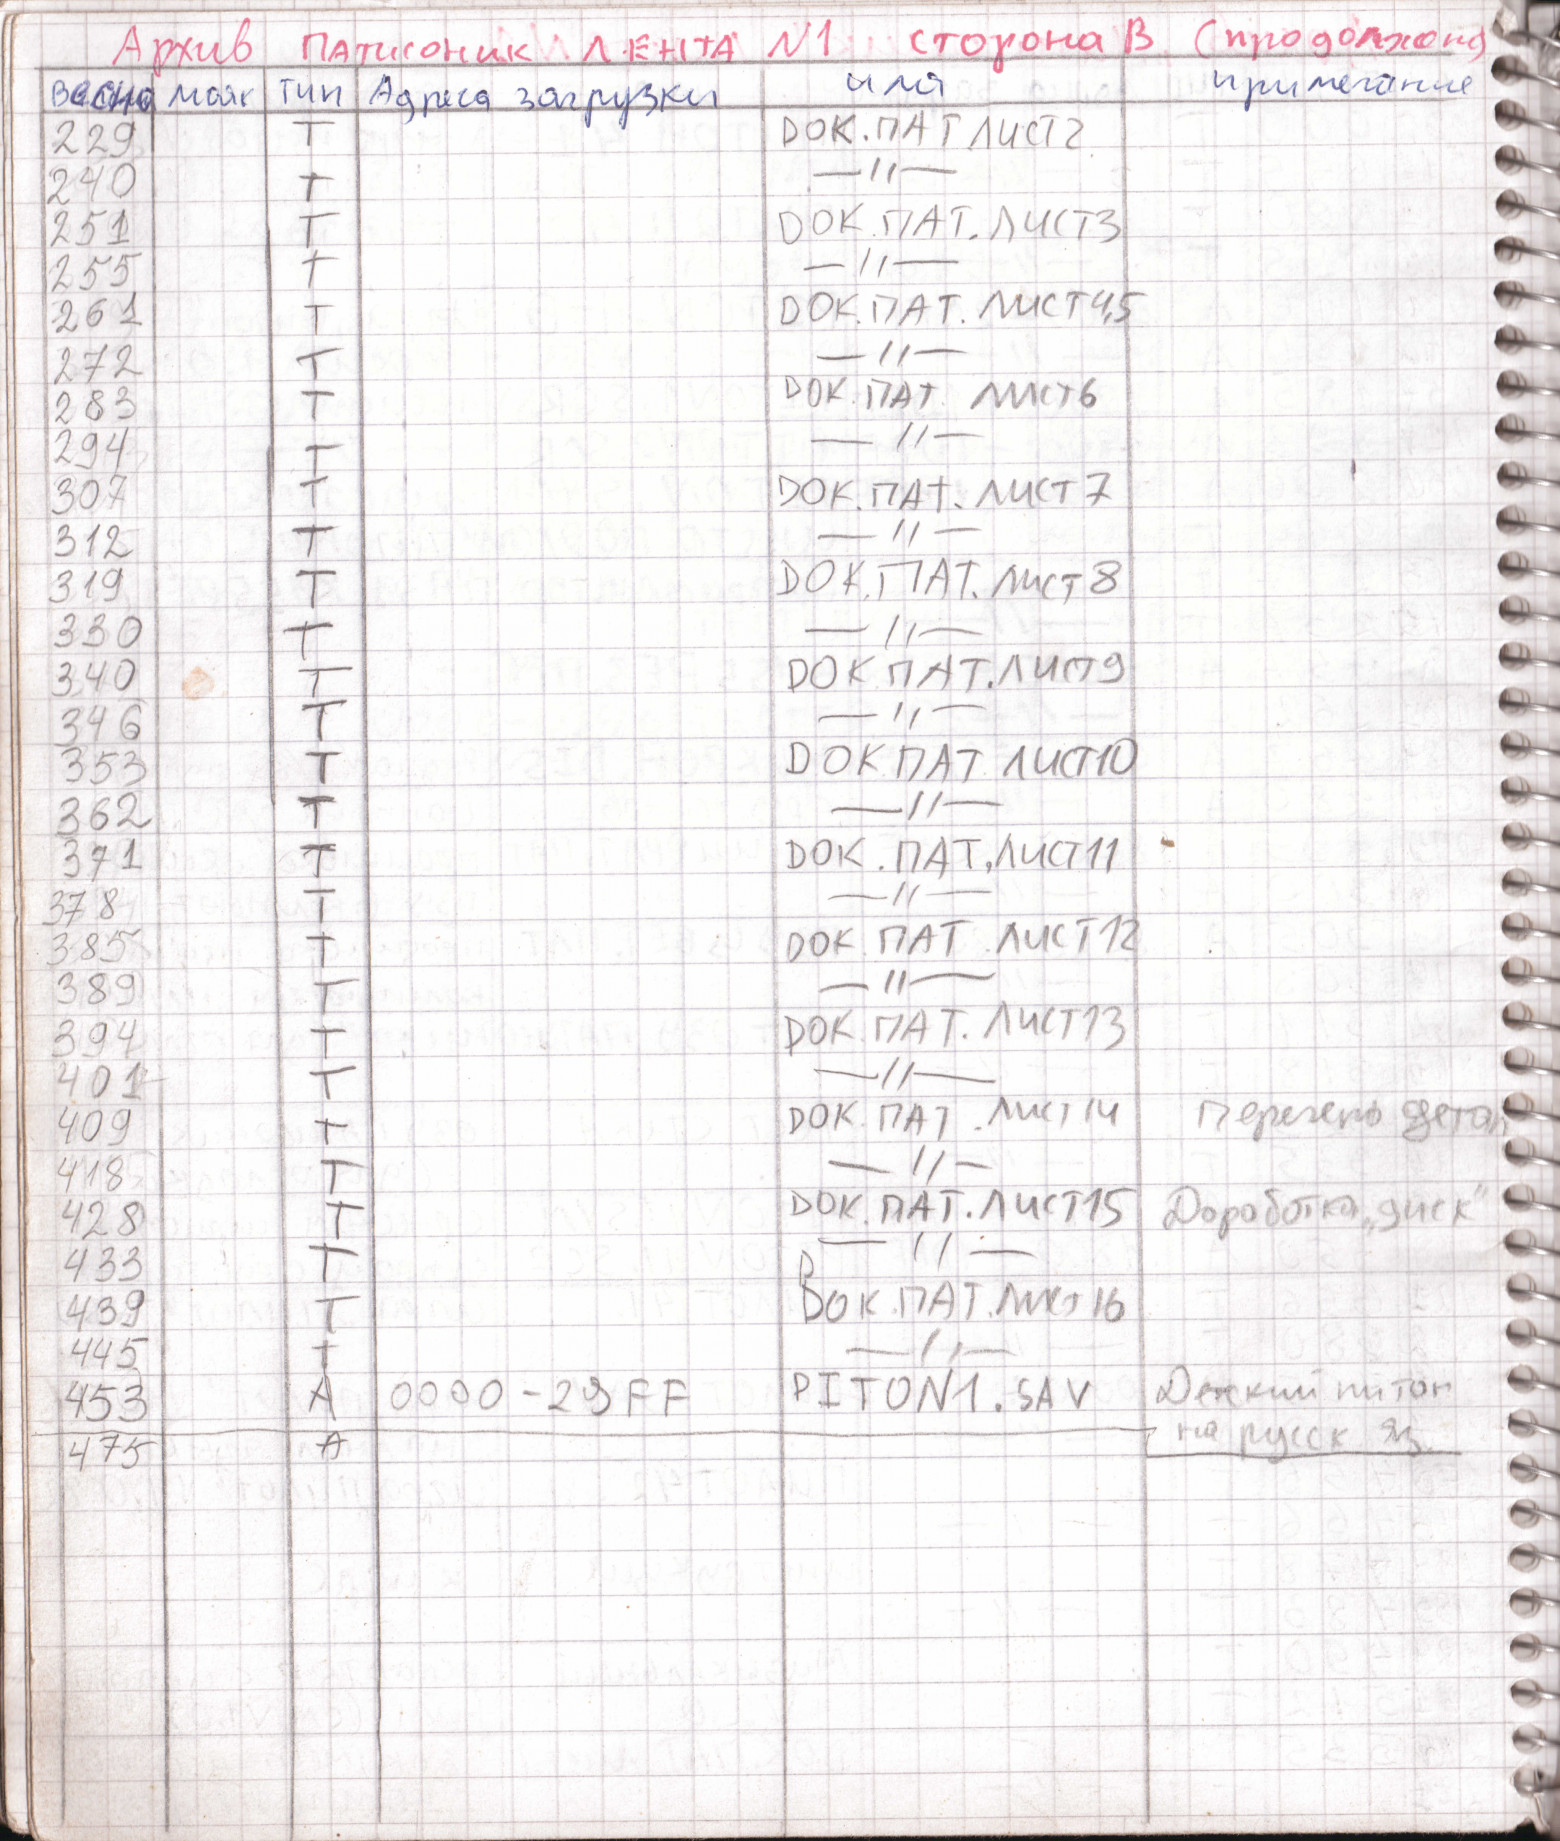 Архив Патисоник ЛЕНТА N1 сторона В (продолжение)
Весна маяк тип Адреса загрузки имя примечание
229 Т ДОК.ПАТ ЛИСТ2
240 Т —〃—
251 Т ДОК.ПАТ.ЛИСТ3
255 Т —〃—
261 Т ДОК.ПАТ.ЛИСТ4,5
272 Т —〃—
283 Т ДОК.ПАТ ЛИСТ6
294 Т —〃—
307 Т ДОК.ПАТ.ЛИСТ7
312 Т —〃—
319 Т ДОК.ПАТ.ЛИСТ8
330 Т —〃—
340 Т ДОК ПАТ.ЛИСТ9
346 Т —〃—
353 Т ДОК ПАТ ЛИСТ10
362 Т —〃—
371 Т ДОК.ПАТ.ЛИСТ11
378 Т —〃—
385 Т ДОК.ПАТ.ЛИСТ12
389 Т —〃—
394 Т ДОК.ПАТ.ЛИСТ13
401 Т —〃—
409 Т ДОК.ПАТ.ЛИСТ14 Перечень детал
418 Т —〃—
428 Т ДОК.ПАТ.ЛИСТ15 Доработка „диск"
433 Т —〃—
439 Т ДОК.ПАТ.ЛИСТ16
445 Т —〃—
453 А 0000-29FF PITON1.SAV Детский питон
на русск яз.
475 А